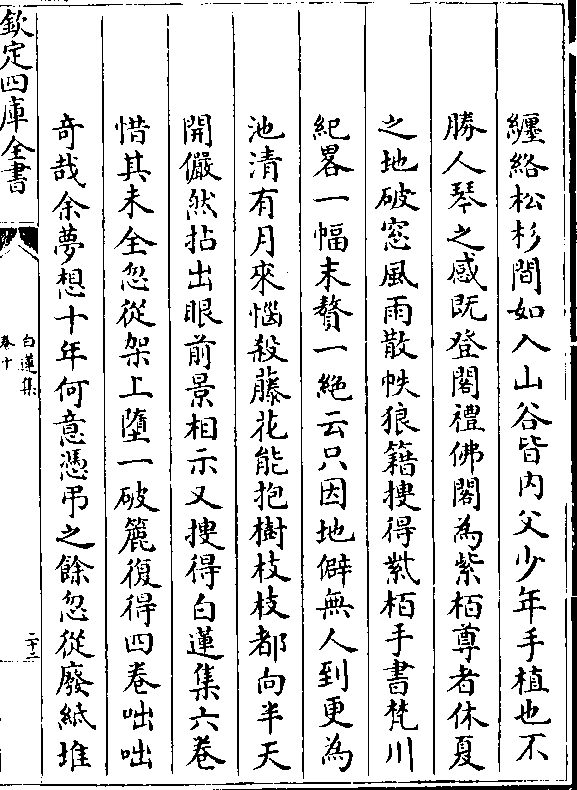 纏絡松杉間如入山谷皆内父少年手植也不
勝人琴之感既登閣禮佛閣為紫栢尊者休夏
之地破窓風雨散帙狼籍搜得紫栢手書梵川
紀畧一幅末贅一絶云只因地僻無人到更為
池清有月來惱殺藤花能抱樹枝枝都向半天
開儼然拈出眼前景相示又搜得白蓮集六巻
惜其未全忽從架上墮一破簏復得四巻咄咄
竒哉余夢想十年何意憑弔之餘忽從廢紙堆
欽定四庫全書
白蓮集
卷十
二十二